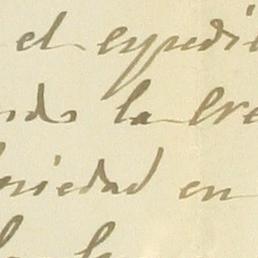 el expedie
ndo la cre
ciedad en